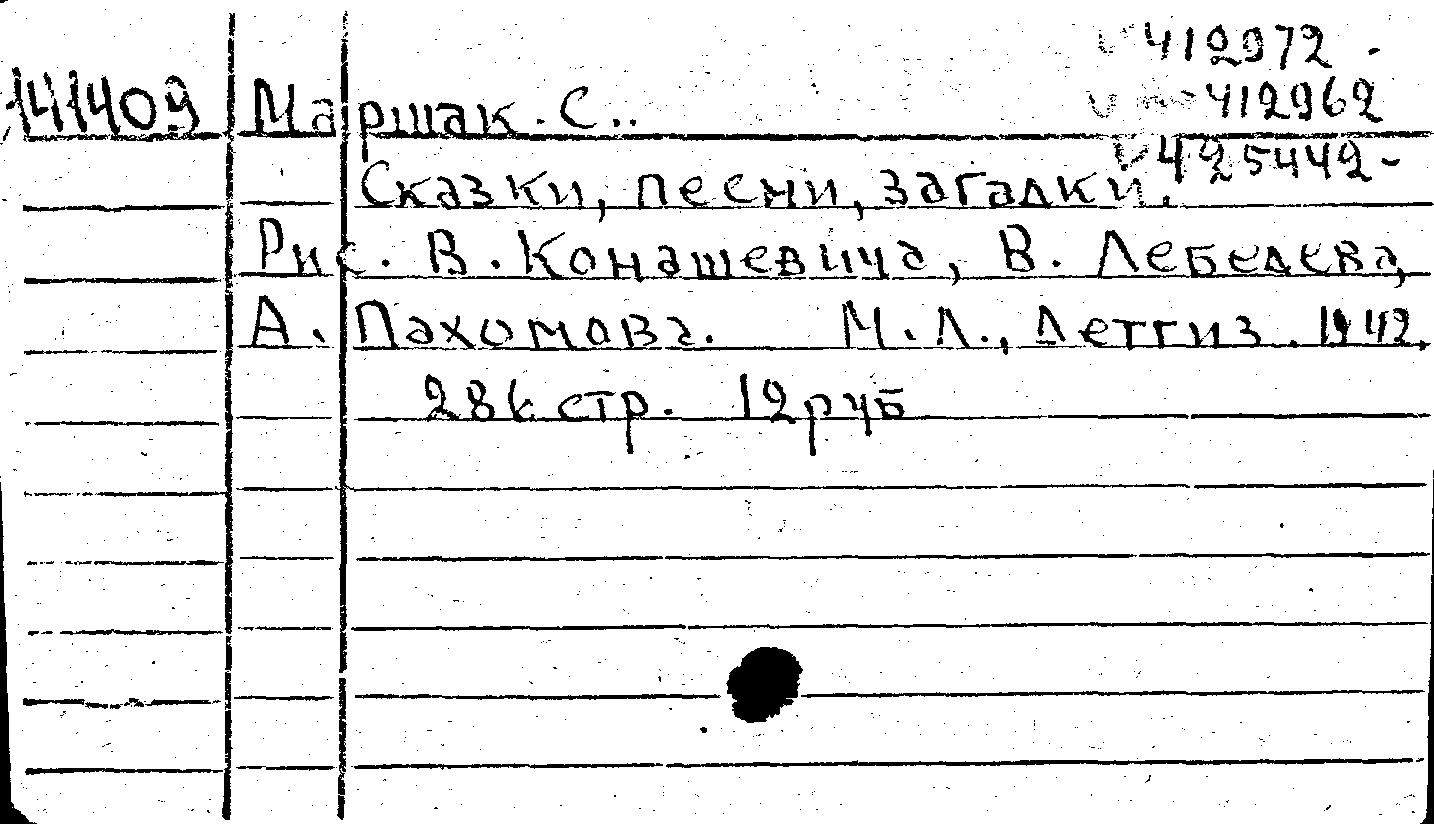 412972 -
412962
141409 Маршак. С..
425442-
Сказки, песни, загадки.
Рис. В. Конашевича, В. Лебедева,
А. Пахомова. М. Л., Детгиз. 1942.
стр. 12 руб